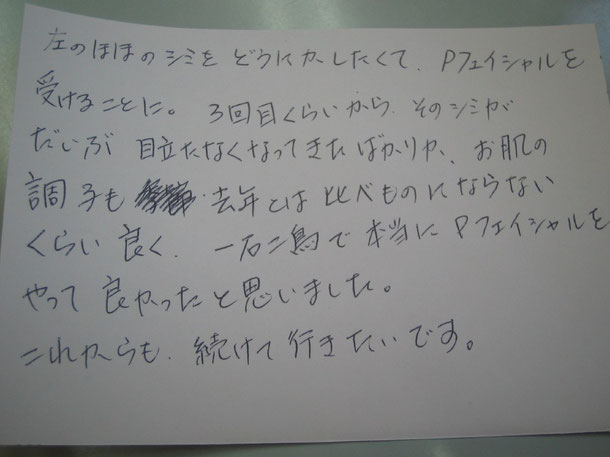 左のほほのシミをどうにかしたくて、Pフェイシャルを
受けることに。3回目くらいから、そのシミが
だいぶ目立たなくなってきたばかりか、お肌の
調子も 去年とは比べものにならない
くらい良く、一石二鳥で本当にPフェイシャルを
やって良かったと思いました。
これからも、続けて行きたいです。